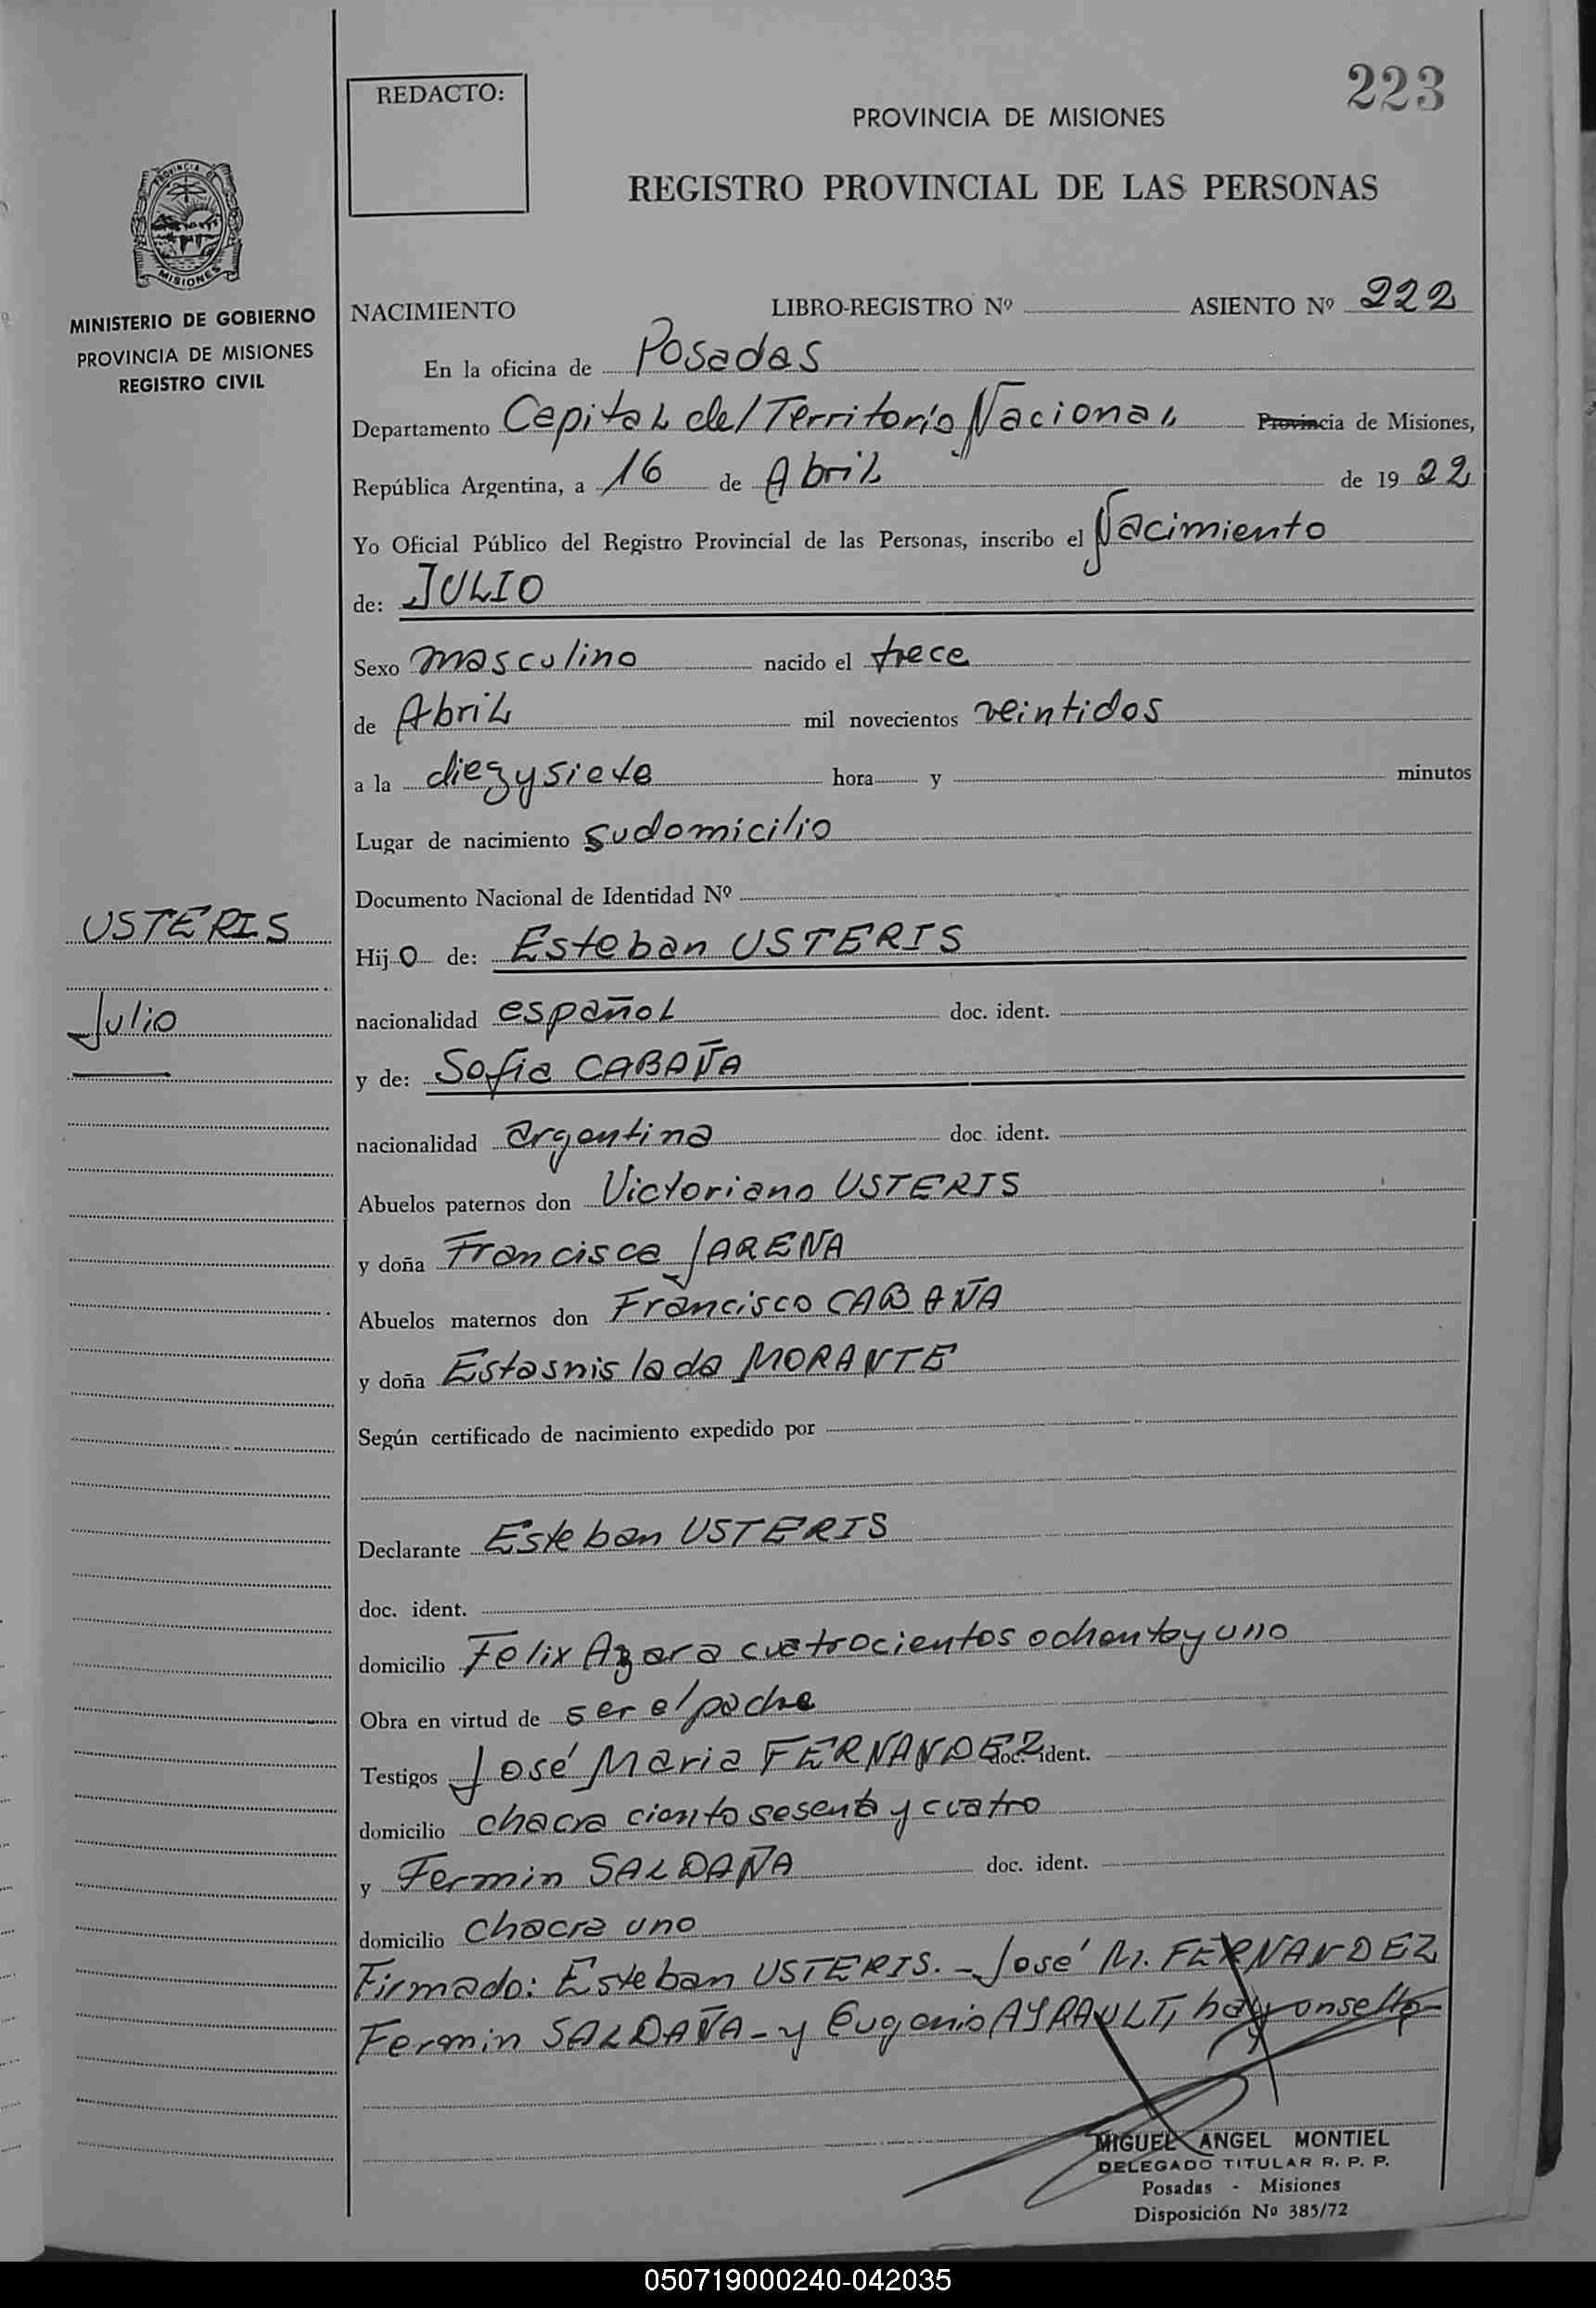 223
REDACTO:
PROVINCIA DE MISIONES
REGISTRO PROVINCIAL DE LAS PERSONAS
PROVINCIA DE
MISIONES
MINISTERIO DE GOBIERNO
PROVINCIA DE MISIONES
REGISTRO CIVIL
NACIMIENTO LIBRO-REGISTRO Nº ASIENTO Nº 222
En la oficina de Posadas
Departamento Capital del Territorio Nacional Provincia de Misiones,
República Argentina, a 16 de Abril de 1922
Yo Oficial Público del Registro Provincial de las Personas, inscribo el Nacimiento
de: JULIO
Sexo masculino nacido el trece
de Abril mil novecientos veintidos
a la diezysiete hora y minutos
Lugar de nacimiento sudomicilio
Documento Nacional de Identidad Nº
USTERIS
Julio
Hijo de: Esteban USTERIS
nacionalidad español doc. ident.
y de: Sofia CABAÑA
nacionalidad argentina doc. ident.
Abuelos paternos don Victoriano USTERIS
y doña Francisca JARENA
Abuelos maternos don Francisco CABAÑA
y doña Estasnislada MORANTE
Según certificado de nacimiento expedido por
Declarante Esteban USTERIS
doc. ident.
domicilio Felix Azara cuatrocientos ochentayuno
Obra en virtud de ser el padre
Testigos José Maria FERNANDEZ doc. ident.
domicilio chacra ciento sesenta y cuatro
y Fermin SALDAÑA doc. ident.
domicilio chacra uno
Firmado: Esteban USTERIS.- José M. FERNANDEZ
Fermin SALDAÑA - y Eugenio AYRAULT, hay unsello-
MIGUEL ANGEL MONTIEL
DELEGADO TITULAR R. P. P.
Posadas - Misiones
Disposición Nº 385/72
050719000240-042035